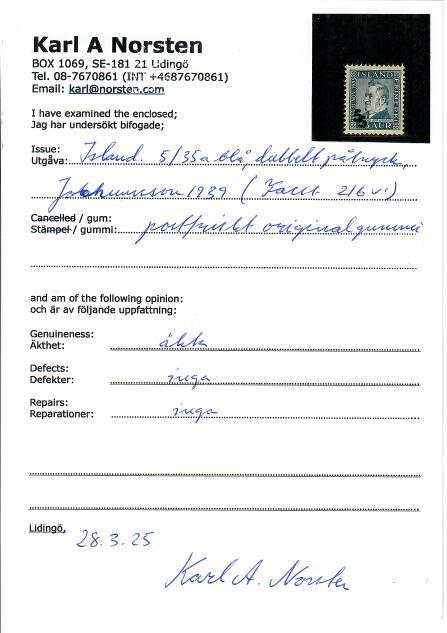 Karl A Norsten
BOX 1069, SE-181 21 Lidingö
Tel. 08-7670861 (INT +4687670861)
Email: karl@norsten.com
ISLAND
5
5
AUR
I have examined the enclosed;
Jag har undersökt bifogade;
Issue:
Utgåva: Island. 5/35a blå, dubbelt påtryck,
Jochumsson 1939 (Facit 216 v1)
Cancelled / gum:
Stämpel / gummi: postfriskt originalgummi
and am of the following opinion:
och är av följande uppfattning:
Genuineness:
Äkthet: äkta
Defects:
Defekter: inga
Repairs:
Reparationer: inga
Lidingö,
28.3.25
Karl A. Norsten